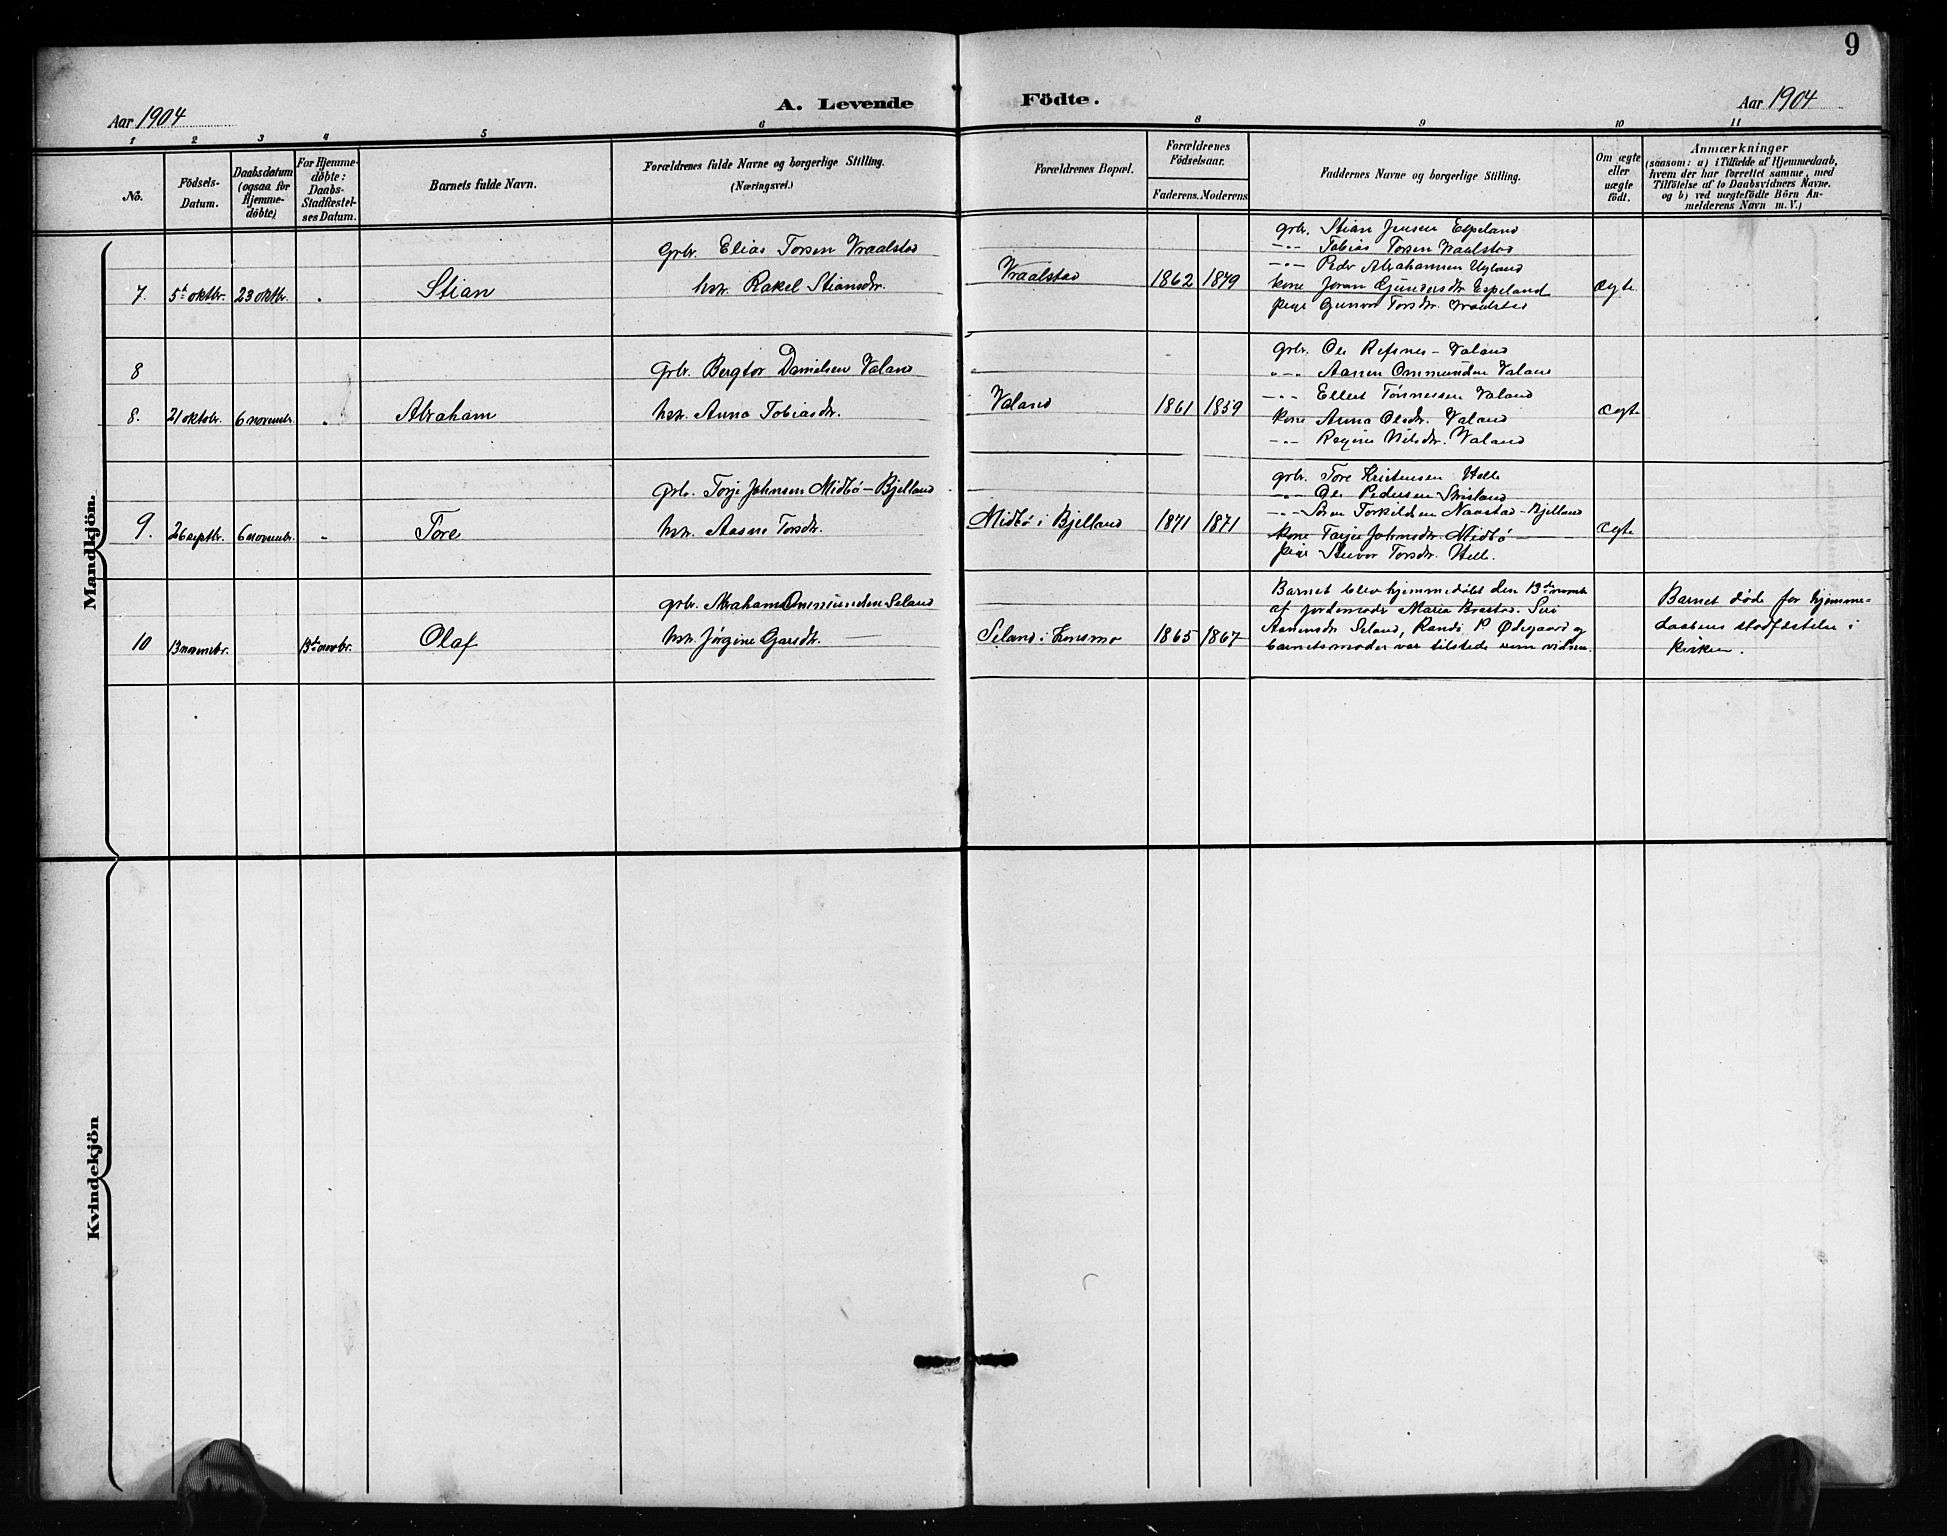 9
Aar 1904
A. Levende
Födte.
Aar 1904
1 2 3 4 5 6 8 9 10 11
No.
Födsels-
Datum.
Daabsdatum
(ogsaa for
Hjemme-
döbte)
For Hjemme-
döbte:
Daabs-
Stadfæstel-
ses Datum.
Barnets fulde Navn.
Forældrenes fulde Navne og borgerlige Stilling.
(Næringsvei.)
Forældrenes Bopæl.
Forældrenes
Födselsaar.
Faderens. Moderens
Faddernes Navne og borgerlige Stilling.
Om ægte
eller
uægte
födt.
Anmærkninger
(saasom: a) i Tilfælde af Hjemmedaab,
hvem der har forrettet samme, med
Tilföielse af to Daabsvidners Navne.
og b) ved uægtefödte Börn An-
melderens Navn m. V.)
Mandkjön.
7. 5t oktbr. 23 oktbr. Stian
grbr. Elias Torsen Vraalstad
hstr. Rakel Stiansdtr.
Vraalstad 1862 1879
grbr. Stian Jensen Espeland
—"— Tobias Torsen Vraalstad
—"— Peder Abrahamsen Uyland
kone Joran Gundersdtr Espeland
pige Gunvor Torsdtr. Vraalstad
ægte
8
8. 21 oktobr. 6 novembr. Abraham
grbr. Bergtor Danielsen Valand
hstr. Anna Tobiasdtr.
Valand 1861 1859
grbr. Ole Refsnes - Valand
—"— Aanen Ommundsen Valand
—"— Ellert Tönnessen Valand
kone Anna Olsdtr. Valand
—"— Regine Nilsdtr. Valand
ægte
9. 26 septbr. 6 novembr. Tore
grbr. Torje Johnsen Midbö - Bjelland
hstr. Aasne Torsdtr.
Midbö i Bjelland 1871 1871
grbr. Tore Kristensen Helle
—"— Ole Pedersen
—"— Torkildsen Navstad - Bjelland
kone Johnsdtr. Midbö
pige Torsdtr. Helle.
ægte
10 13 novembr. 13de novbr. Olaf
grbr. Abraham Ommundsen Seland
hstr. Jörgine —
Seland i 1865 1867
Barnet blev hjemmedöbt den 13de novembr
af jordemoder Maria Siri
Aanensdtr Seland, Randi P. Ødegaard og
barnets moder var tilstede som vidner.
Barnet døde før hjemme-
daabens stadfæstelse i
kirken.
Kvindekjön